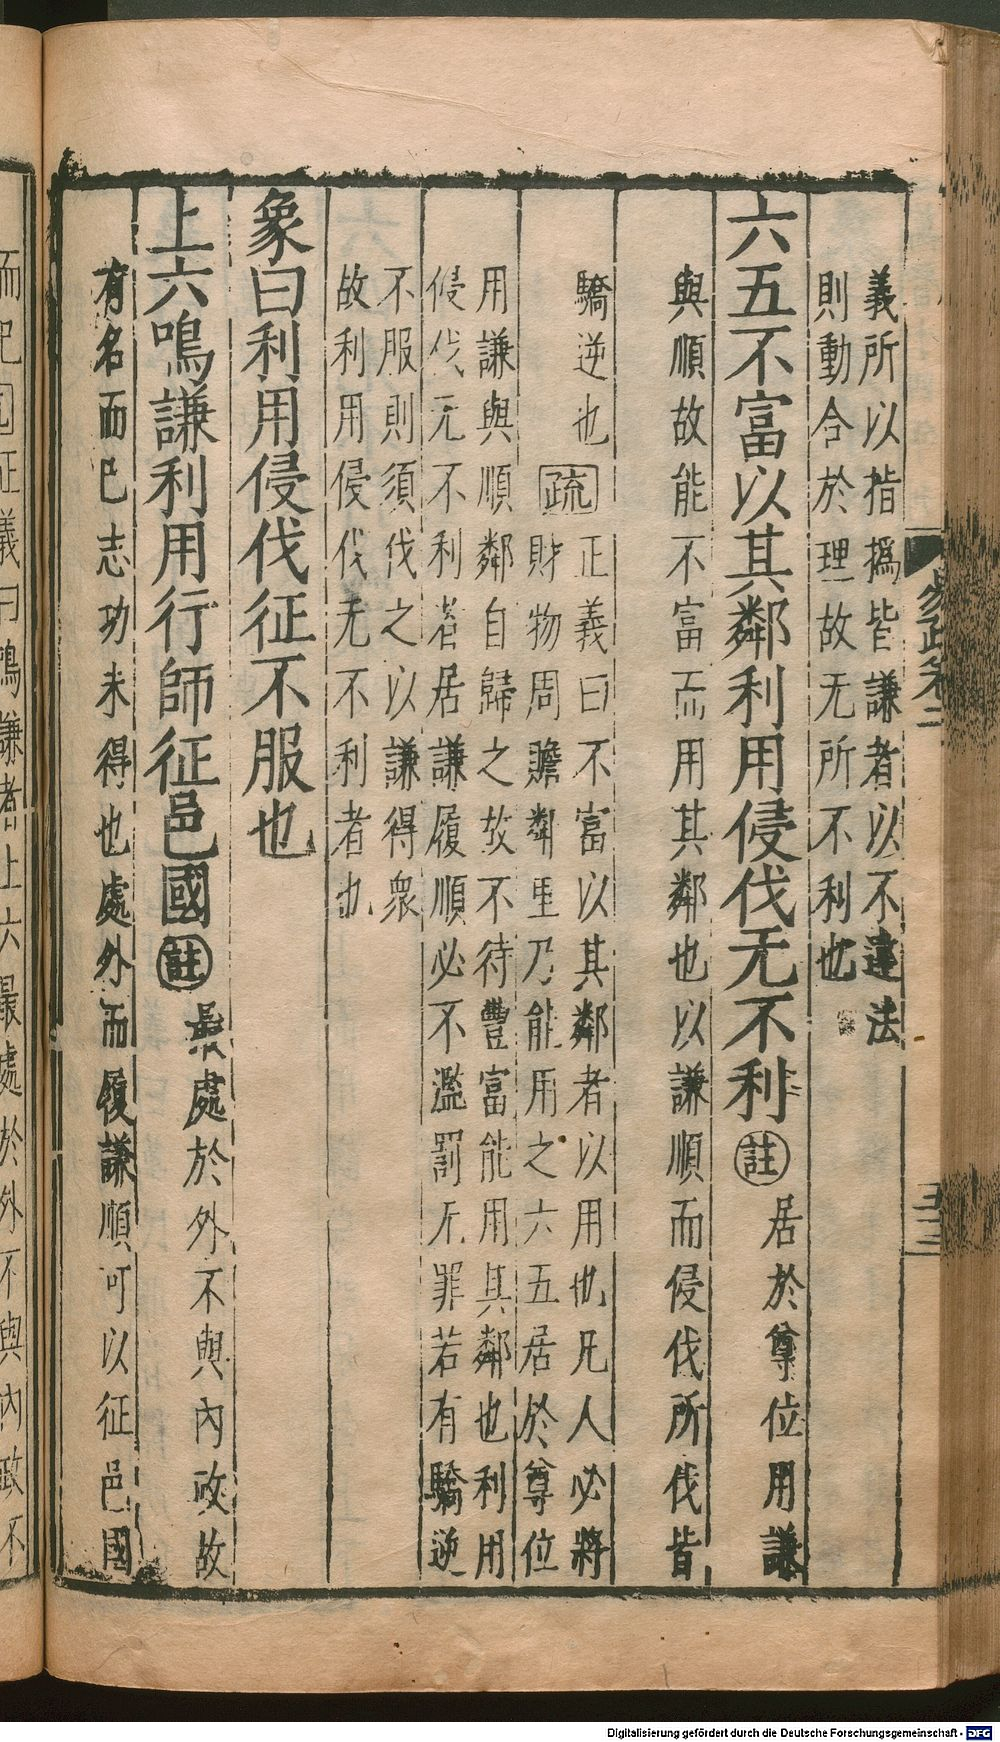 義所以指撝皆謙者以不違法
則動合於理故无所不利也
六五不富以其鄰利用侵伐无不利註居於尊位用謙
與順故能不富而用其鄰也以謙順而侵伐所伐皆
驕逆也
疏
正義曰不富以其鄰者以用也凡人必將
財物周贍鄰里乃能用之六五居於尊位
用謙與順鄰自歸之故不待豐富能用其鄰也利用
侵伐无不利者居謙履順必不濫罰无罪若有驕逆
不服則須伐之以謙得衆
故利用侵伐无不利者也
象曰利用侵伐征不服也
上六鳴謙利用行師征邑國註最處於外不與內政故
有名而已志功未得也處外而履謙順可以征邑國
易疏卷二
正義曰鳴謙者上六最處於外不與內政不
Digitalisierung gefördert durch die Deutsche Forschungsgemeinschaft - DFG